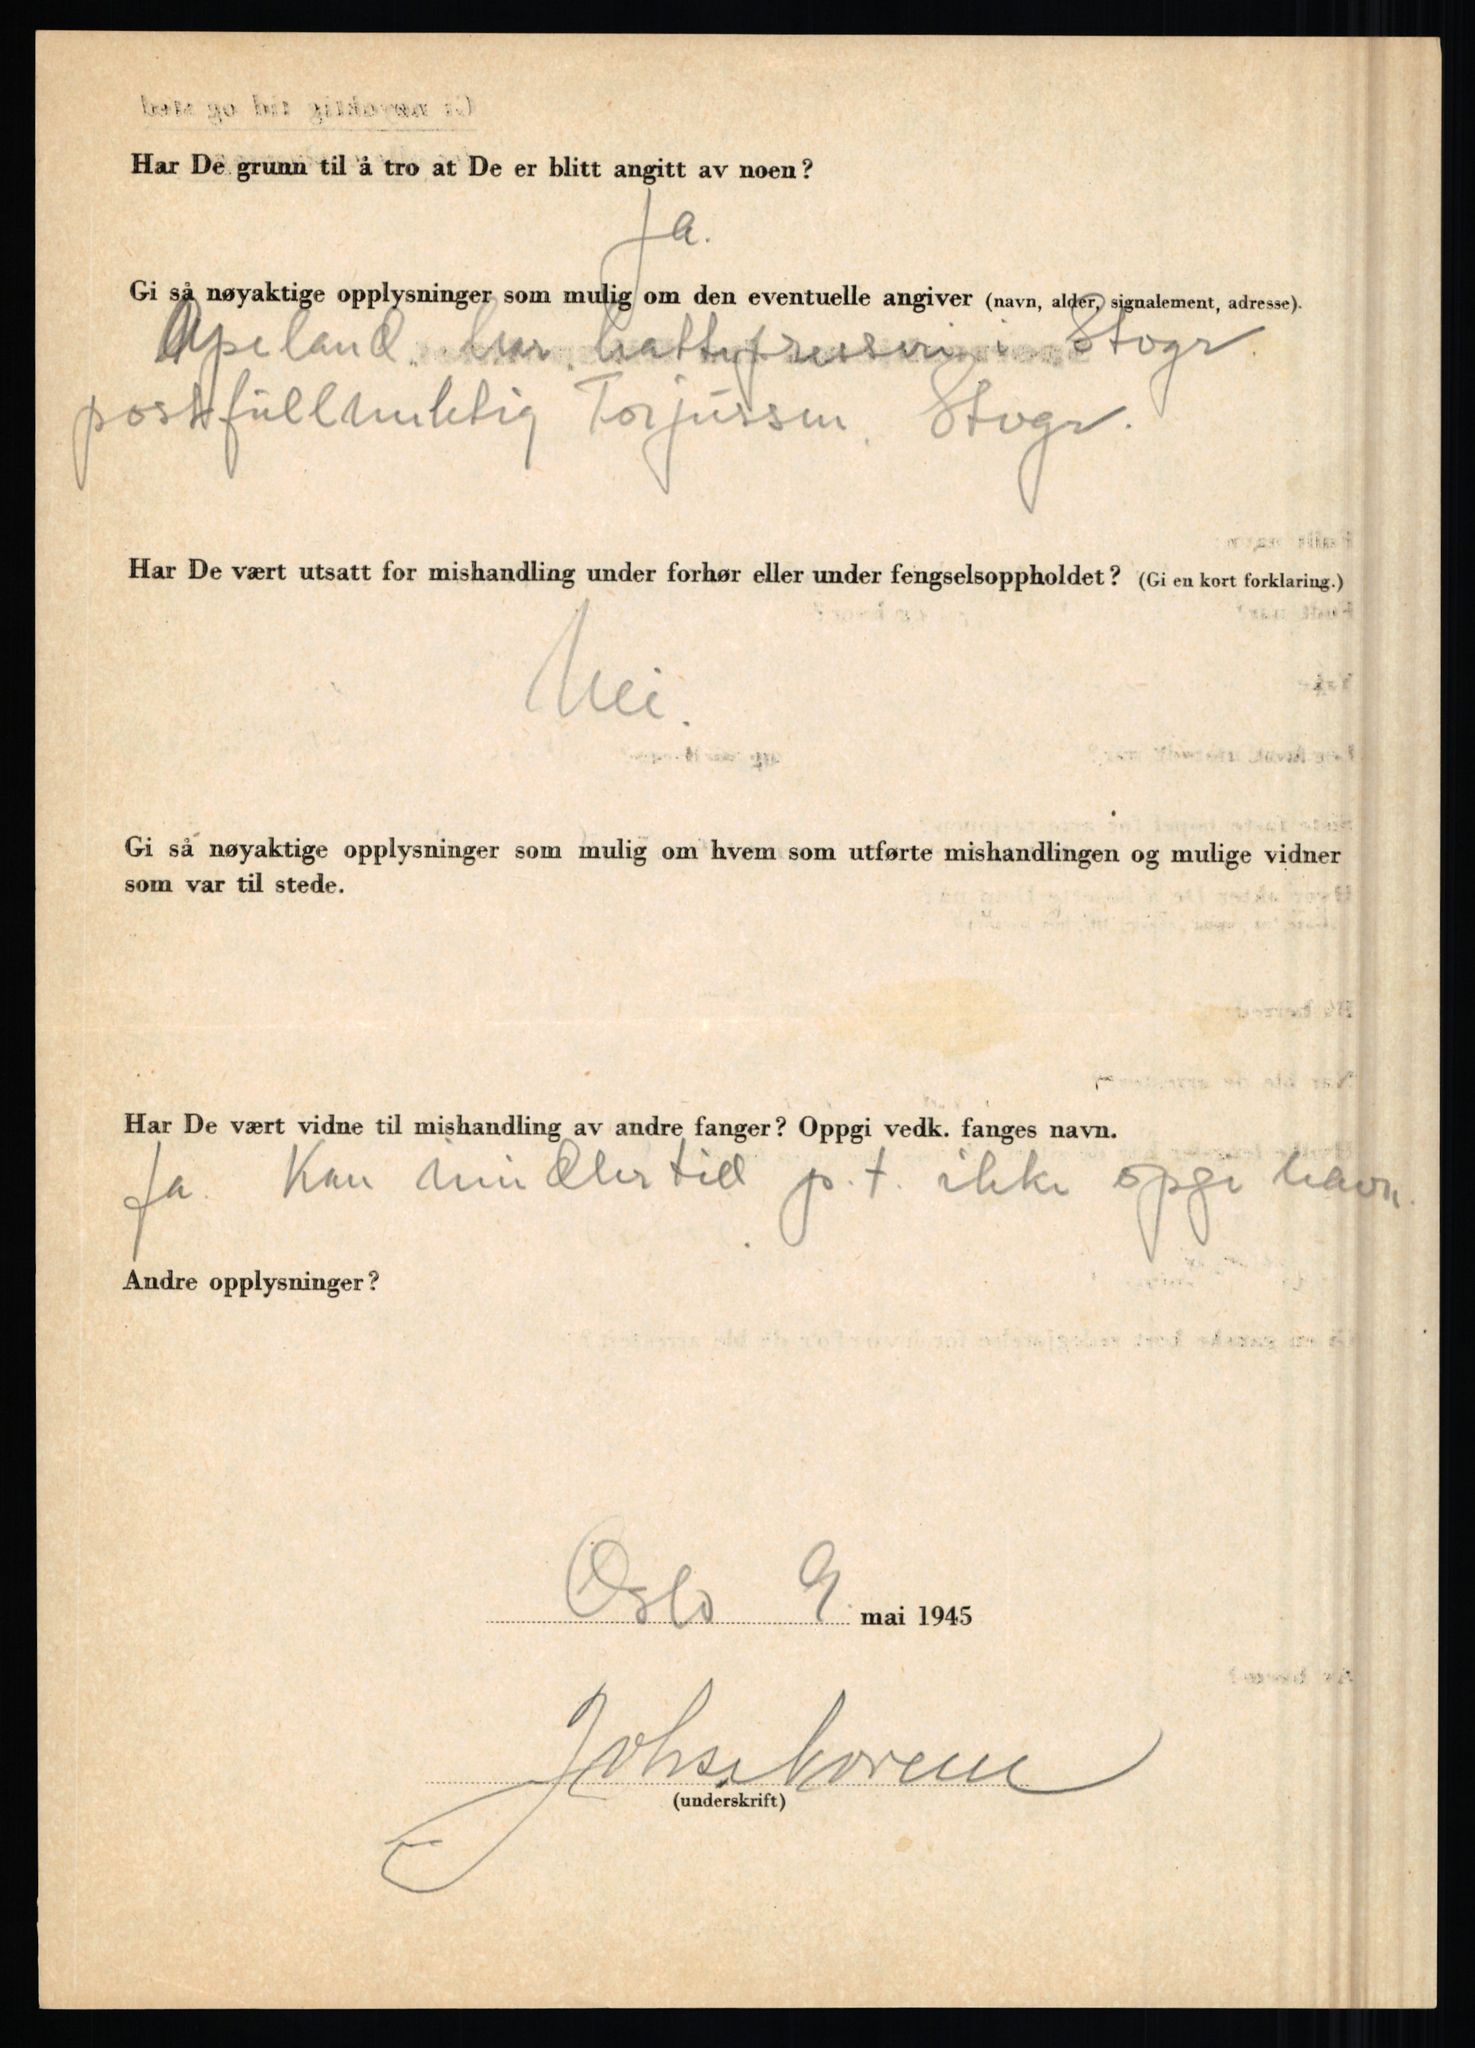 Har De grunn til å tro at De er blitt angitt av noen?
Ja.
Gi så nøyaktige opplysninger som mulig om den eventuelle angiver (navn, alder, signalement, adresse).
Apeland, har hattepresseri i Stvgr.
postfullmektig Torjussen, Stvgr.
Har De vært utsatt for mishandling under forhør eller under fengselsoppholdet? (Gi en kort forklaring.)
Nei.
Gi så nøyaktige opplysninger som mulig om hvem som utførte mishandlingen og mulige vidner
som var til stede.
Har De vært vidne til mishandling av andre fanger? Oppgi vedk. fanges navn.
Ja. Kan imidlertid p.t. ikke opgi navn.
Andre opplysninger?
Oslo 9. mai 1945
(underskrift)